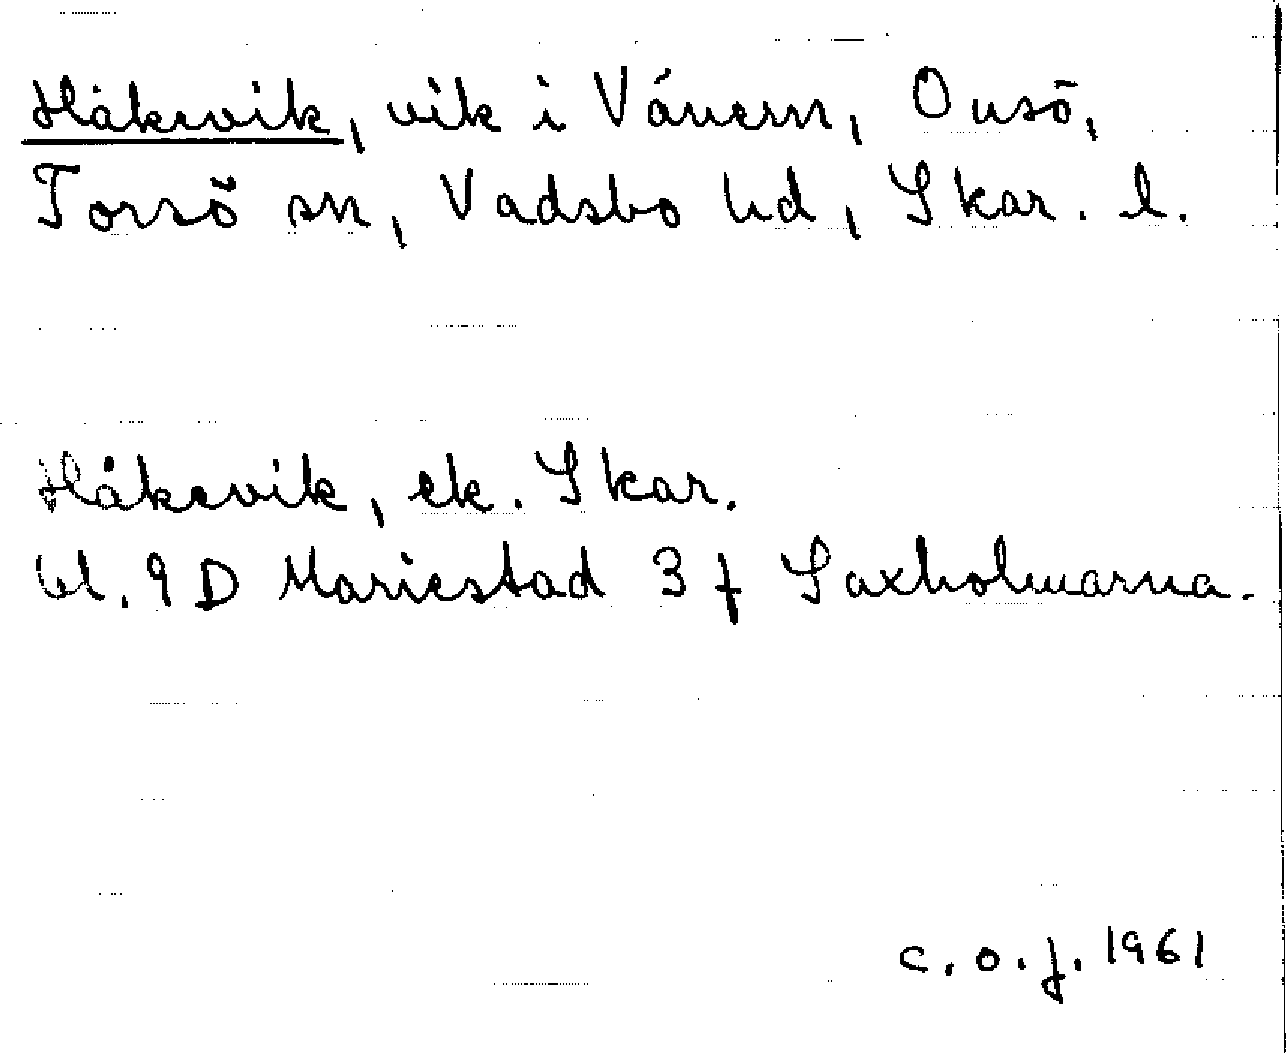 Håkevik, vik i Vänern, Onsö,
Torsö sn, Vadsbo hd, Skar. l.
Håkevik, ek. Skar.
bl. 9 D Mariestad 3 f Laxholmarna.
C. O. J. 1961